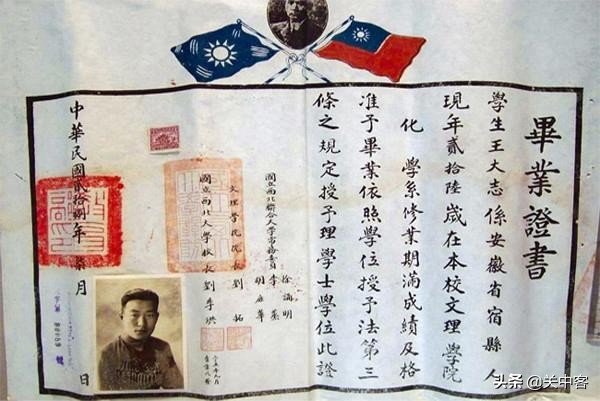 畢業證書
學生王大志係安徽省宿縣人
現年貳拾陸歲在本校文理學院
化學系修業期滿成績及格
准予畢業依照學位授予法第三
條之規定授予理學士學位此證
國立西北聯合大學常務委員
徐誦明
李蒸
胡庶華
文理學院院長劉拓
國立西北大學校長劉季洪
中華民國貳拾捌年柒月日
头条 @关中客